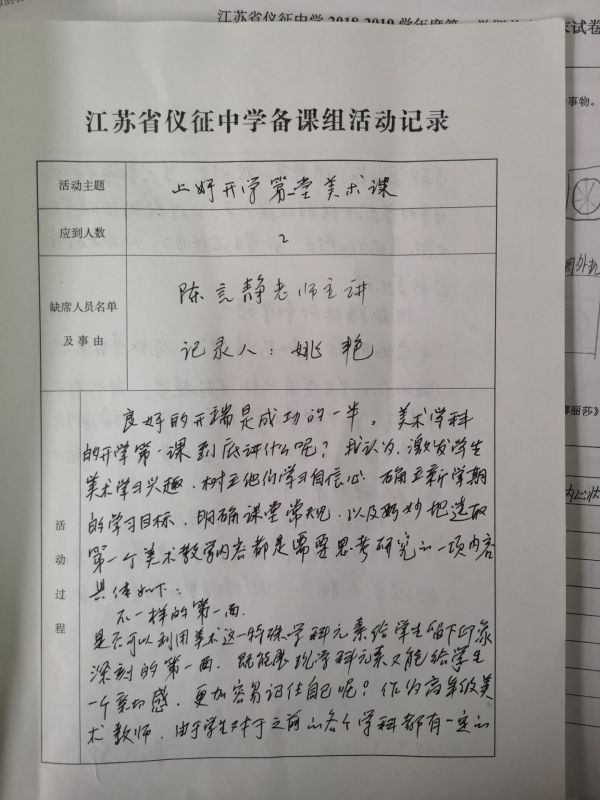 江苏省仪征中学2018-2019学年度第
试卷
江苏省仪征中学备课组活动记录
事物。
活动主题
上好开学第一堂美术课
应到人数
2
缺席人员名单
及事由
陈言静老师主讲
记录人：姚艳
活动过程
良好的开端是成功的一半。美术学科
的开学第一课到底讲什么呢？我认为，激发学生
美术学习兴趣、树立他们学习自信心、确立新学期
的学习目标、明确课堂常规、以及巧妙地选取
第一个美术教学内容都是需要思考研究的一项内容
具体如下：
不一样的第一面．
是否可以利用美术这一特殊学科元素给学生留下印象
深刻的第一面．既能展现学科元素又能给学生
一个亲切感，更加容易记住自己呢？作为高年级美
术教师，由于学生对于之前的各个学科都有一定的